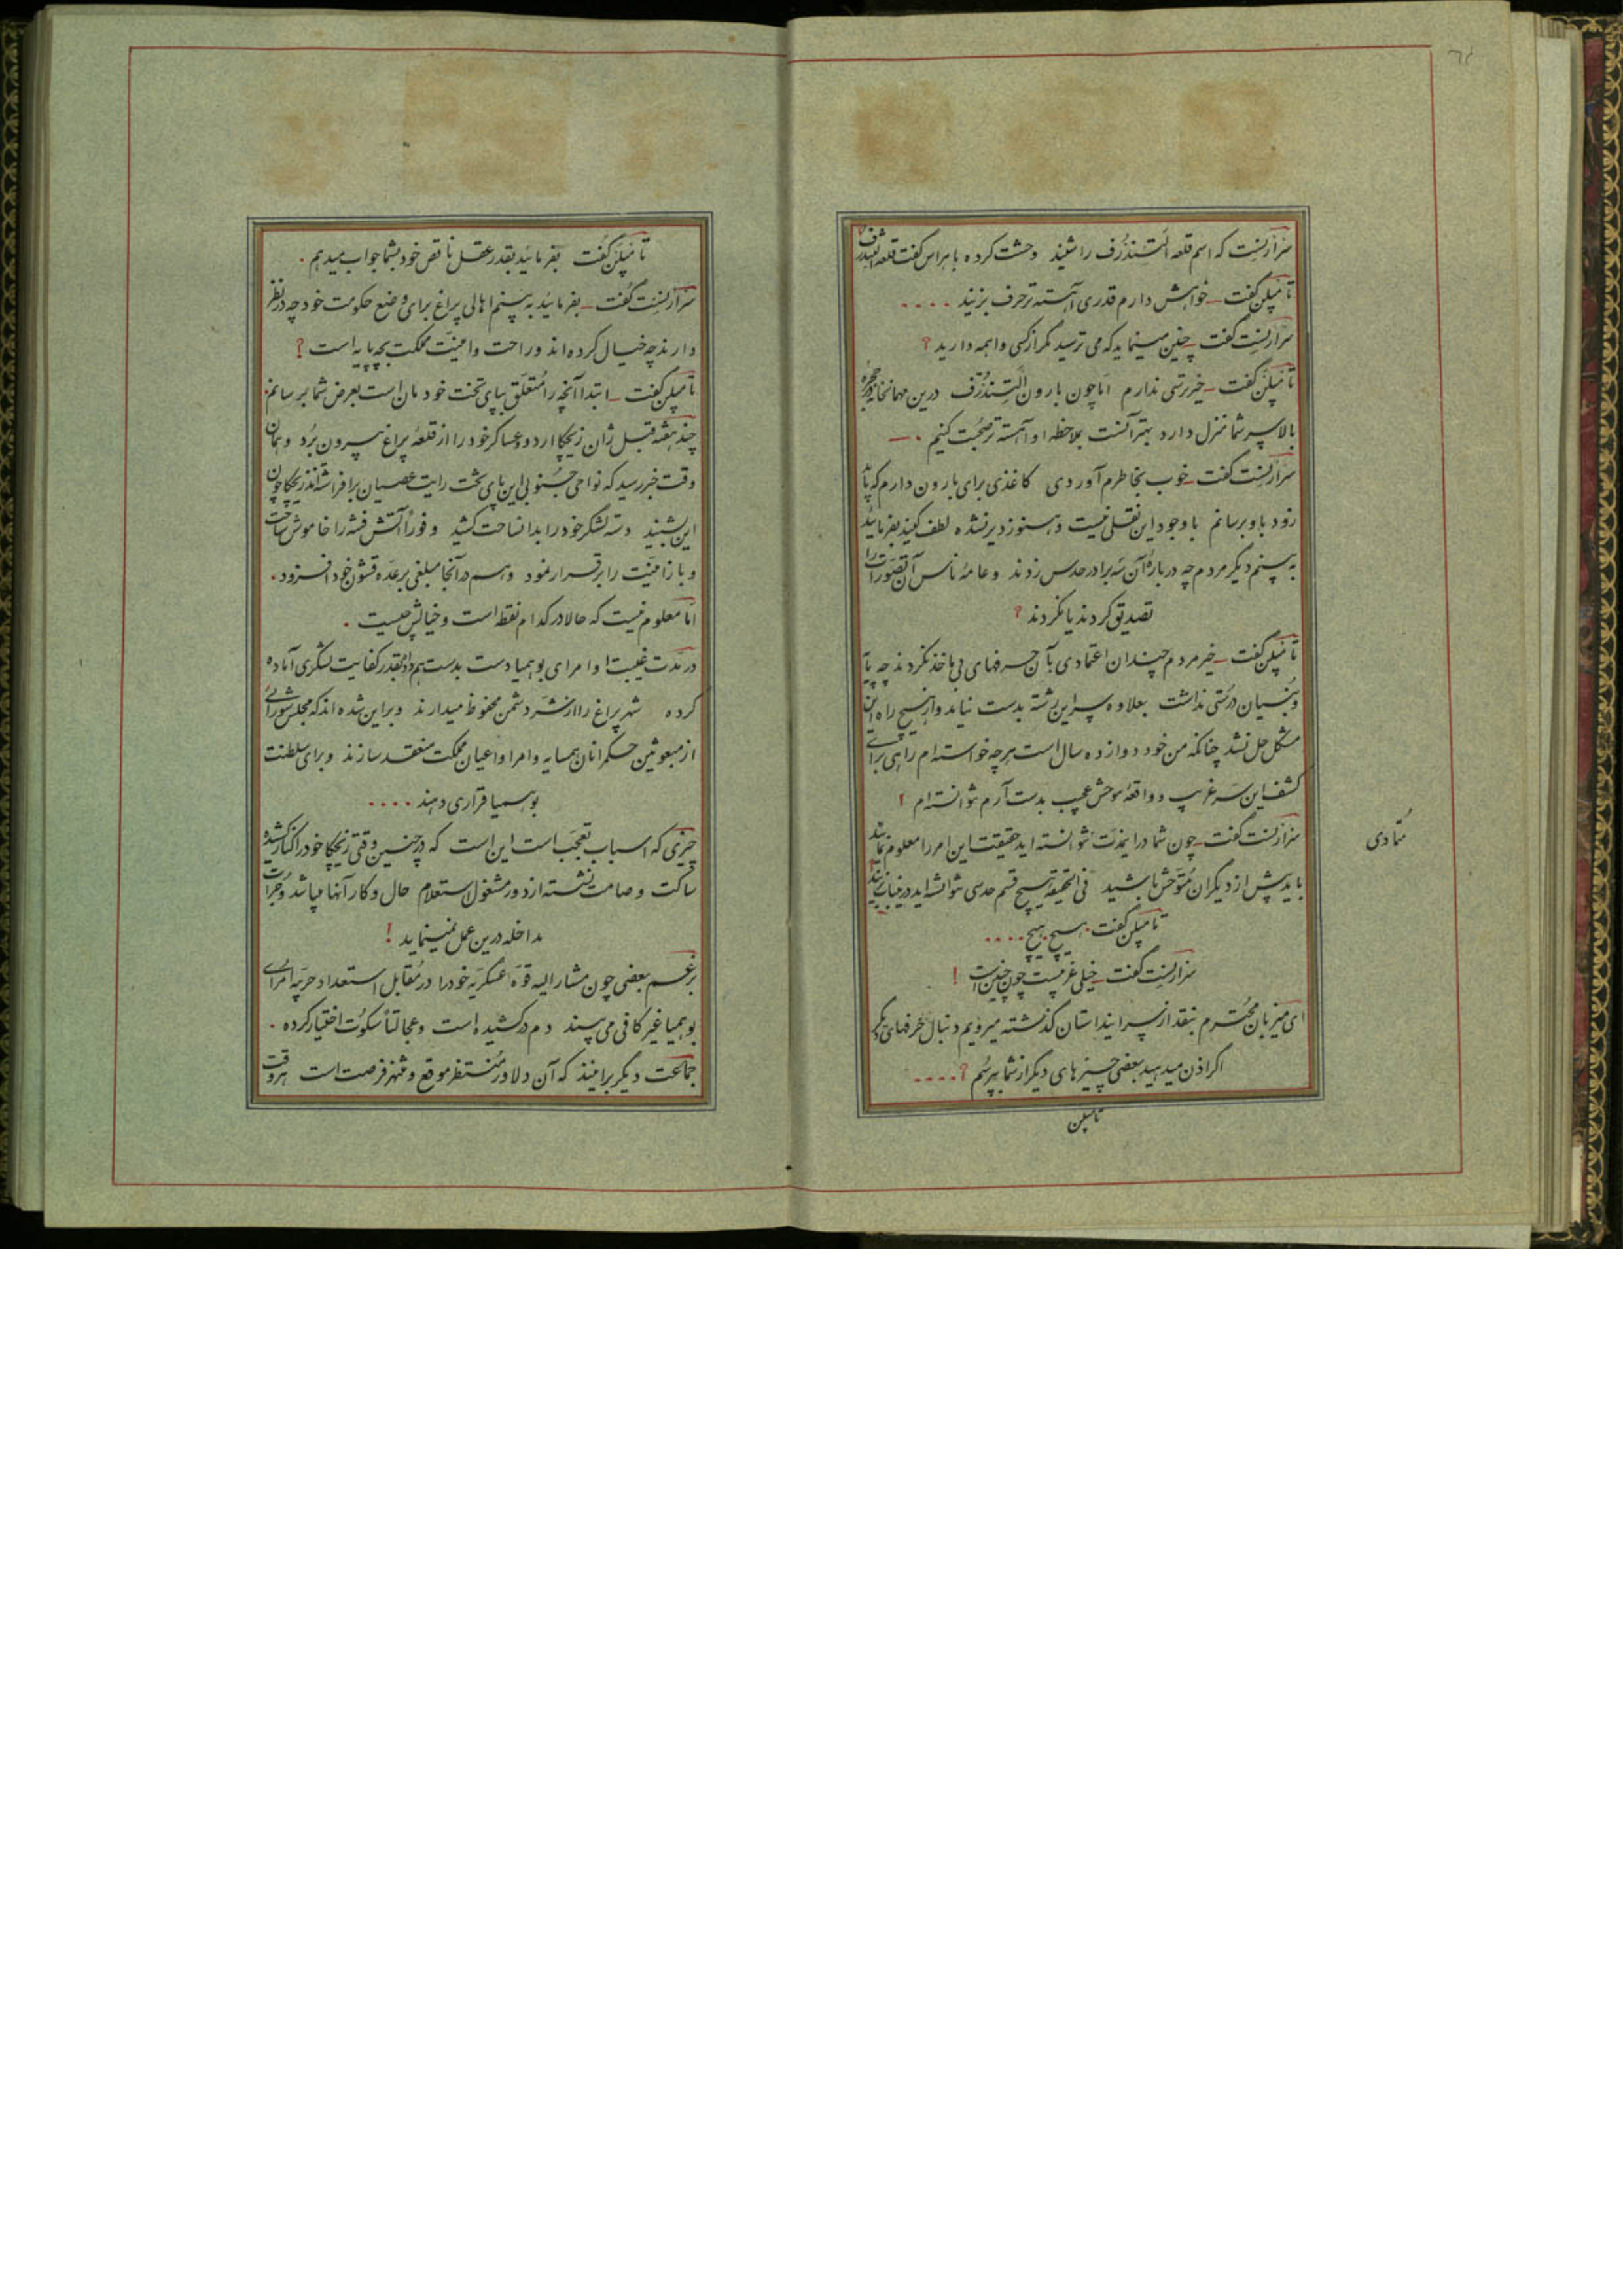 سرارنست که اسم قلعه الستندرف را شنید وحشت کرده با هراس گفت قلعه
تامپلن گفت خواهش دارم قدری آهسته تر حرف بزنید ....
سرارنست گفت چنین مینماید که می ترسید مگر از کسی واهمه دارید ؟
تامپلن گفت خیر ترسی ندارم اما چون بارون الستندرف درین مهمانخانه در حجره
بالا سر شما منزل دارد بهتر آنست بملاحظه او آهسته تر صحبت کنیم .
سرارنست گفت خوب بخاطرم آوردی کاغذی برای بارون دارم که باید
زود باو برسانم با وجود این نقلی نیست و هنوز دیر نشده لطف کنید بفرمائید
به بینم دیگر مردم چه درباره آن سه برادر حدس زدند و عامه ناس آن تصورات را
تصدیق کردند یا نکردند ؟
تامپلن گفت خیر مردم چندان اعتمادی بآن حرفهای بی ماخذ نکردند چه پایه
و بنیان درستی نداشت بعلاوه سر این رشته بدست نیامد و از هیچ راه این
مشکل حل نشد چنانکه من خود دوازده سال است هرچه خواسته ام راهی برای
کشف این سر غریب و واقعه موحش عجیب بدست آرم نتوانسته ام !
سرارنست گفت چون شما در اینمدت نتوانسته اید حقیقت این امر را معلوم نمائید
باید پیش از دیگران متوحش باشید فی الحقیقه هیچ قسم حدسی نتوانسته اید درینباب بزنید
تامپلن گفت هیچ هیچ ....
سرارنست گفت خیلی غریبست چون چنین است !
ای میزبان محترم بنقد از سر اینداستان گذشته میرویم دنبال حرفهای دیگر
اگر اذن میدهید بعضی چیزهای دیگر از شما بپرسم ؟ ....
تامپلن
متمادی
تامپلن گفت بفرمائید بقدر عقل ناقص خود بشما جواب میدهم .
سرارنست گفت بفرمائید به بینم اهالی پراغ برای وضع حکومت خود چه در نظر
دارند چه خیال کرده اند و راحت و امنیت مملکت بچه پایه است ؟
تامپلن گفت ابتدا آنچه را متعلق بپای تخت خودمان است بعرض شما برسانم
چند هفته قبل ژان زیچکا اردو و عساکر خود را از قلعه پراغ بیرون برد و همان
وقت خبر رسید که نواحی جنوبی این پای تخت رایت عصیان برافراشته اند زیچکا چون
این شنید دسته لشکر خود را بدانساحت کشید و فوراً آتش فتنه را خاموش ساخت
و باز امنیت را برقرار نمود و هم در آنجا مبلغی بر عده قشون خود افزود .
اما معلوم نیست که حالا در کدام نقطه است و خیالش چیست .
در مدت غیبت او امرای بوهمیا دست بدست هم داده بقدر کفایت لشکری آماده
کرده شهر پراغ را از شر دشمن محفوظ میدارند و بر این شده اند که مجلس شورائی
از مبعوثین حکمرانان همسایه و امرا و اعیان مملکت منعقد سازند و برای سلطنت
بوهمیا قراری دهند ....
چیزی که اسباب تعجب است این است که در چنین وقتی زیچکا خود را کنار کشیده
ساکت و صامت نشسته از دور مشغول استعلام حال و کار آنها میباشد و جرأت
مداخله درین عمل نمینماید !
بزعم بعضی چون مشارالیه قوه عسکریه خود را در مقابل استعداد حربیه امرای
بوهمیا غیر کافی می بیند دم در کشیده است و عجالتاً سکوت اختیار کرده .
جماعت دیگر برانند که آن دلاور منتظر موقع و منتهز فرصت است هر وقت